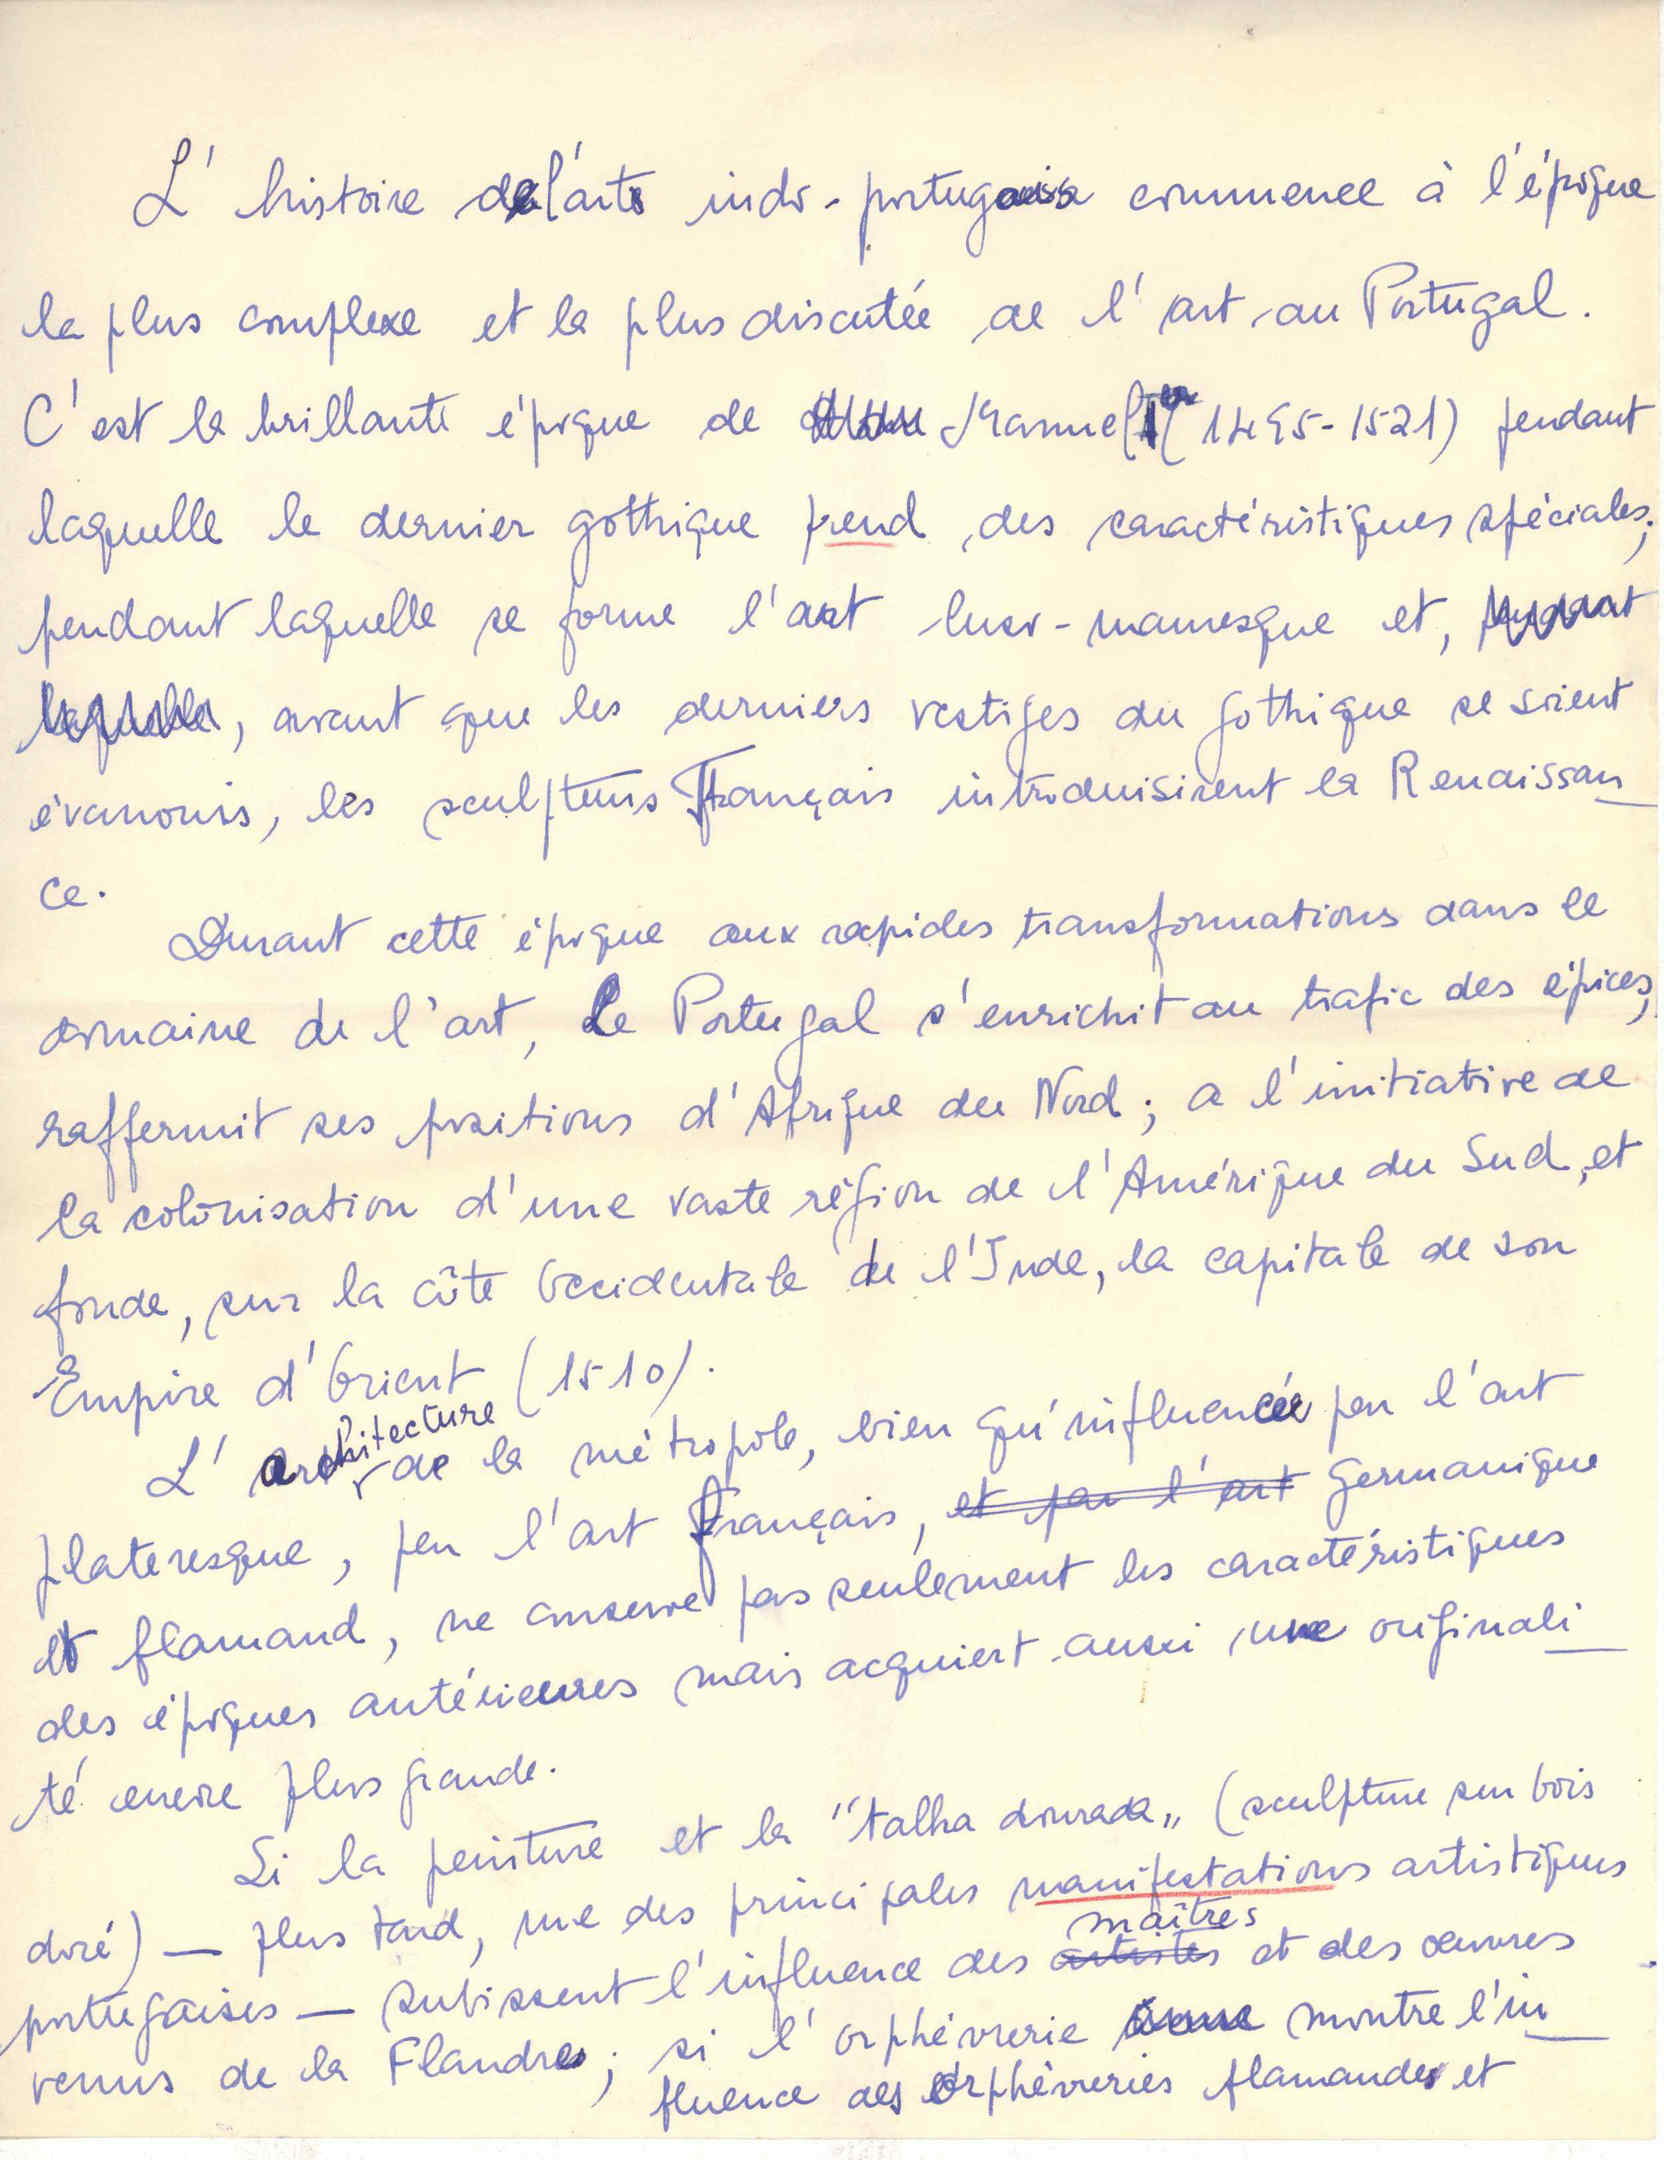 L'histoire de l'art indo-portugais commence à l'époque
la plus complexe et la plus discutée de l'art au Portugal.
C'est la brillante époque de Manuel Ier (1495-1521) pendant
laquelle le dernier gothique prend des caractéristiques spéciales;
pendant laquelle se forme l'art luso-mauresque et, pendant
laquelle, avant que les derniers vestiges du gothique se soient
évanouis, les sculpteurs Français introduisirent la Renaissan
ce.
Durant cette époque aux rapides transformations dans le
domaine de l'art, Le Portugal s'enrichit au trafic des épices,
raffermit ses positions d'Afrique du Nord; a l'initiative de
la colonisation d'une vaste région de l'Amérique du Sud, et
fonde, sur la côte Occidentale de l'Inde, la capitale de son
Empire d'Orient (1510).
L'architecture de la métropole, bien qu'influencée par l'art
plateresque, par l'art français, et par l'art germanique
et flamand, ne conserve pas seulement les caractéristiques
des époques antérieures mais acquiert aussi une originali
té encore plus grande.
Si la peinture et la "talha dourada" (sculpture sur bois
doré) — plus tard, une des principales manifestations artistiques
portugaises — subissent l'influence des artistes maîtres et des œuvres
venus de la Flandres; si l'orphévrerie montre l'in
fluence des orphévreries flamandes et